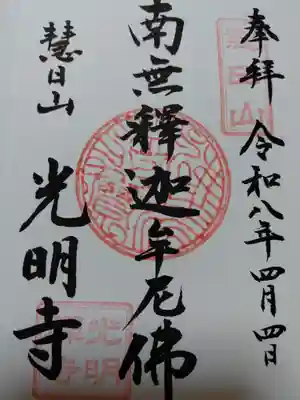 奉拝 令和八年四月四日
南無釋迦牟尼佛
慧日山
光明寺
慧日山
光明
寺